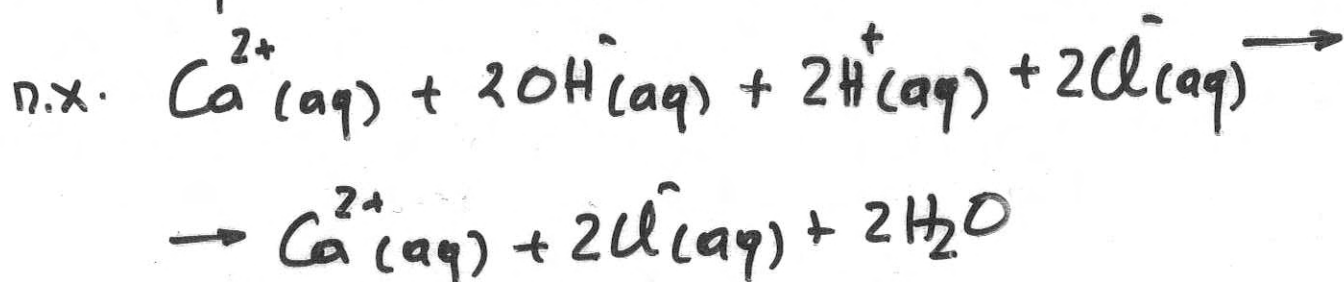 π.χ. Ca²⁺(aq) + 2OH⁻(aq) + 2H⁺(aq) + 2Cl⁻(aq) →
→ Ca²⁺(aq) + 2Cl⁻(aq) + 2H₂O